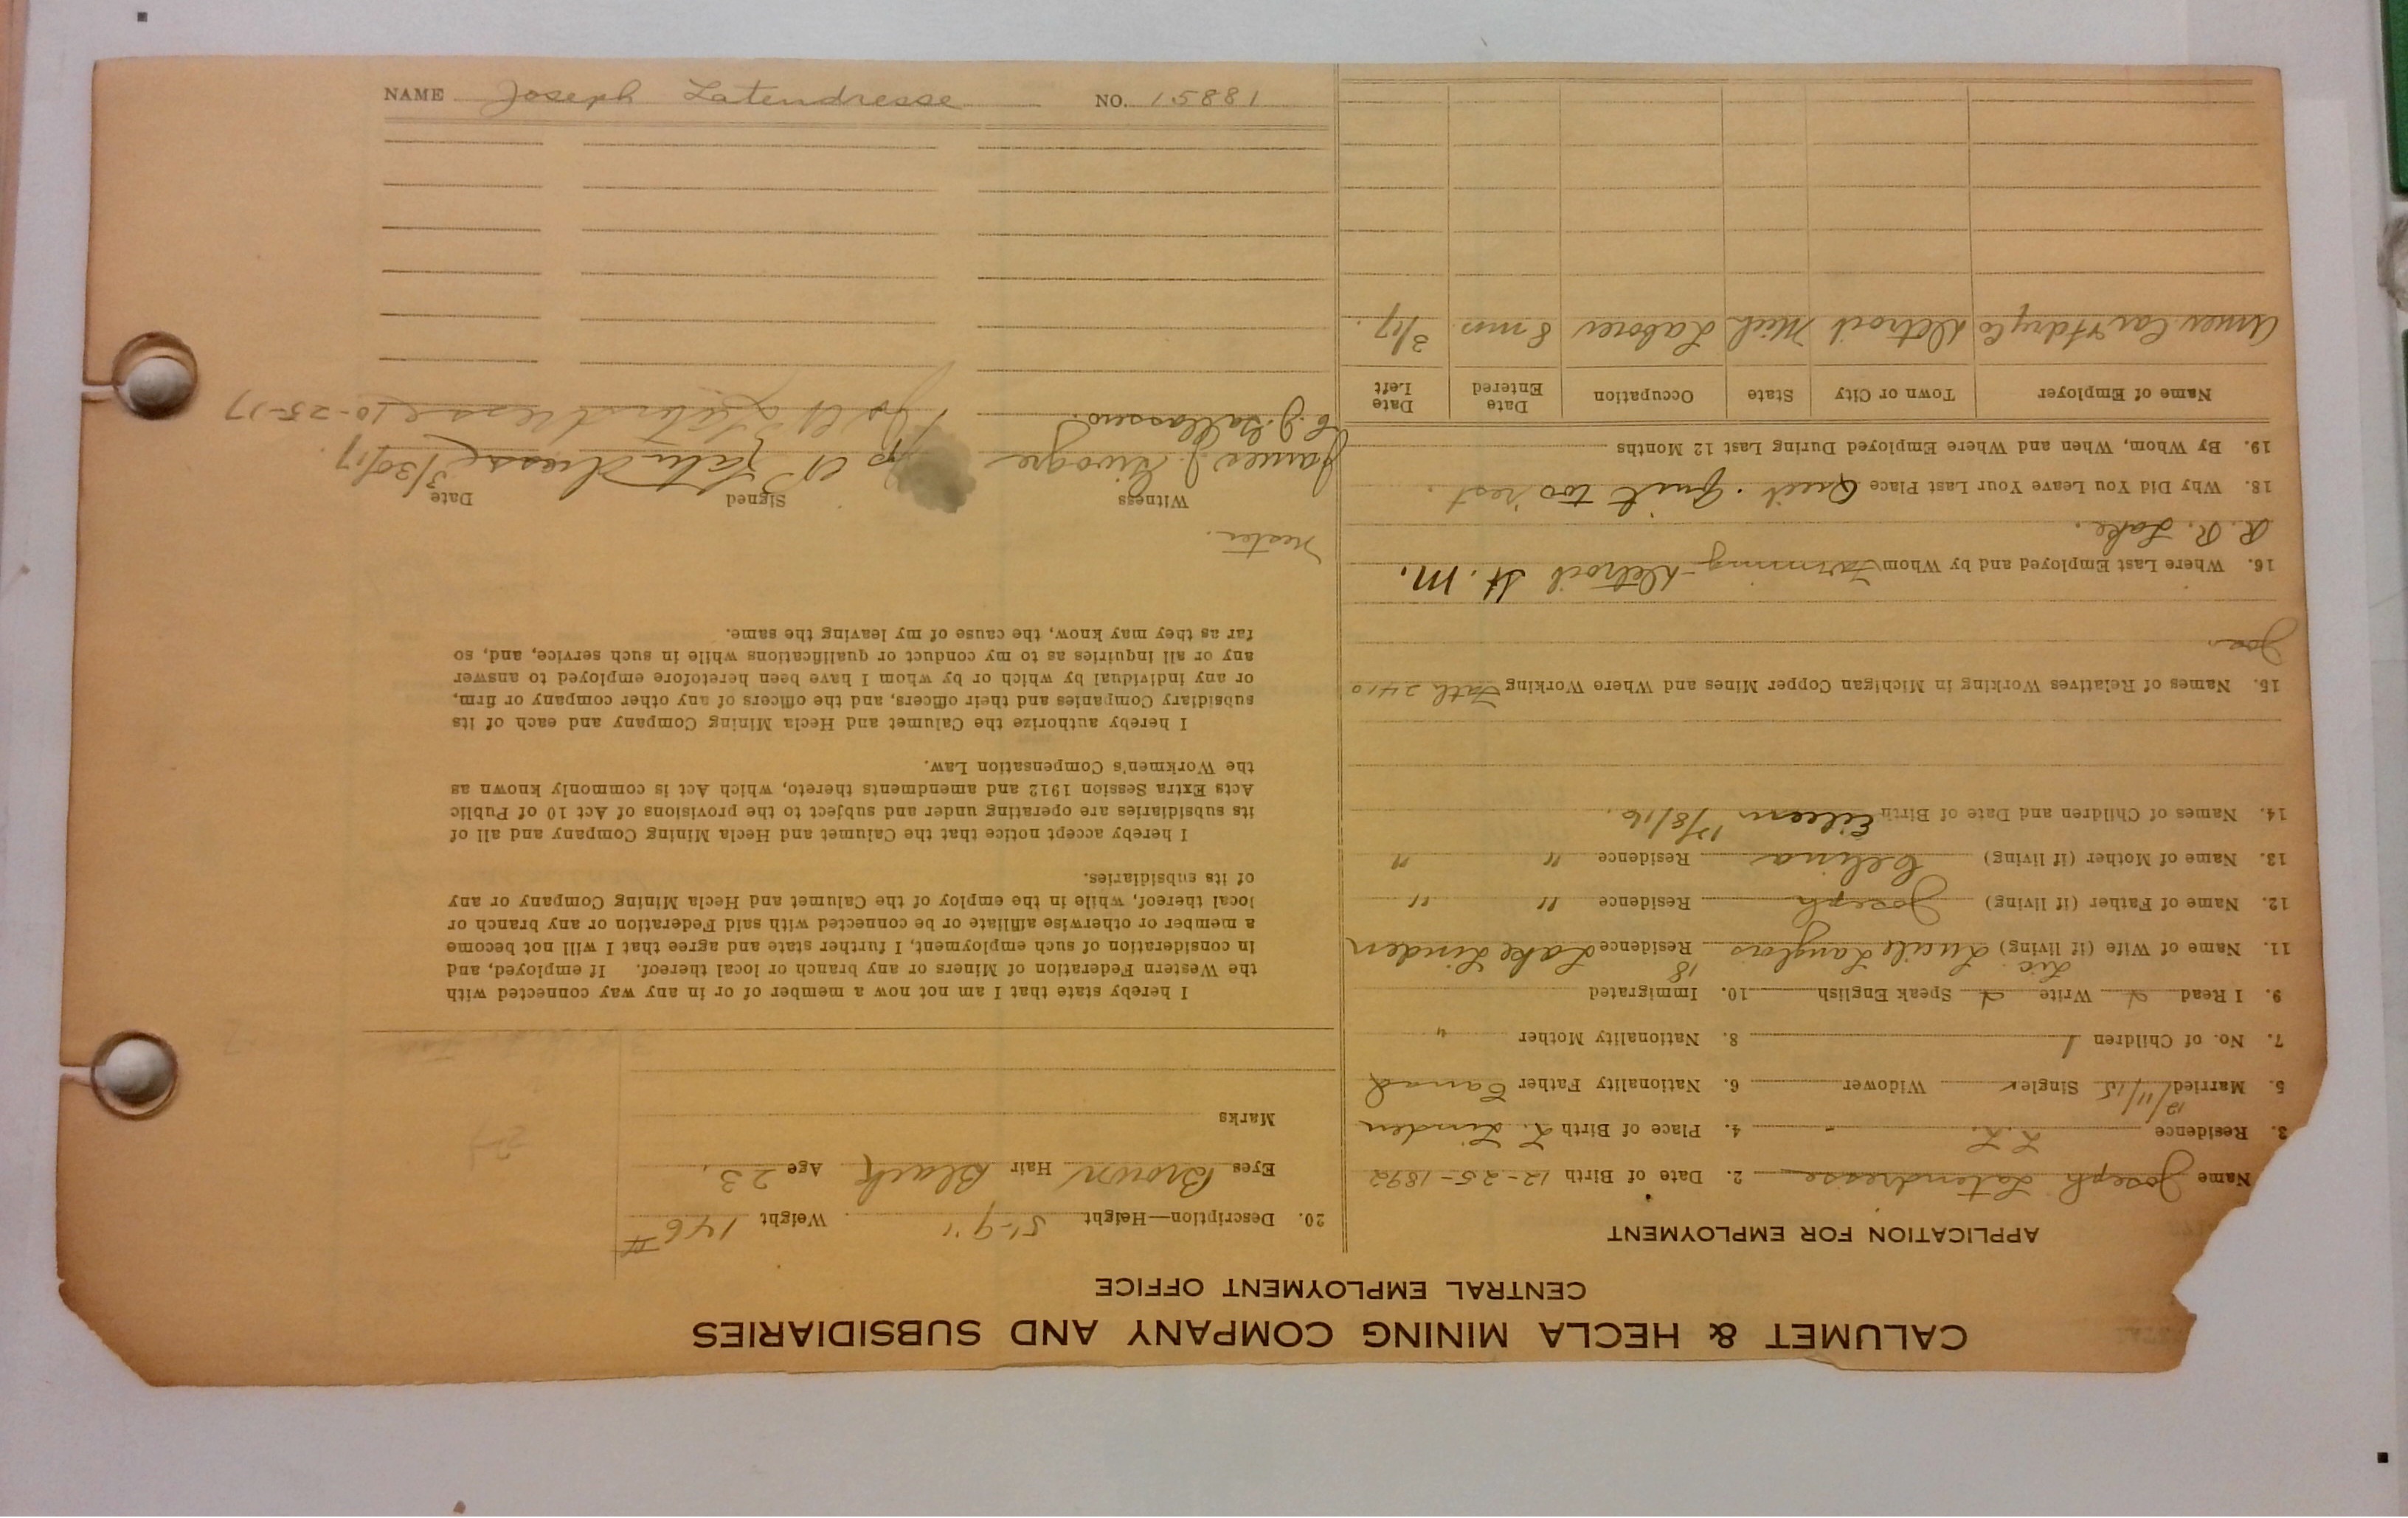 CALUMET & HECLA MINING COMPANY AND SUBSIDIARIES
CENTRAL EMPLOYMENT OFFICE
APPLICATION FOR EMPLOYMENT
Name Joseph Latendresse 2. Date of Birth 12-25-1892
3. Residence L. L. 4. Place of Birth L. Linden
5. Married 12/11/15 Single Widower 6. Nationality Father Canad
7. No. of Children 1 8. Nationality Mother "
9. I Read Write Speak English 10. Immigrated
Lic. 18
11. Name of Wife (if living) Lucile Langlois Residence Lake Linden
12. Name of Father (if living) Joseph Residence " "
13. Name of Mother (if living) Celina Residence " "
14. Names of Children and Date of Birth Eileen 12/8/16.
15. Names of Relatives Working in Michigan Copper Mines and Where Working Fath 2410
Jos.
16. Where Last Employed and by Whom Farming - Detroit St. M.
R. R. Lake.
18. Why Did You Leave Your Last Place Quit. Quit too rest.
19. By Whom, When and Where Employed During Last 12 Months
Name of Employer Town or City State Occupation Date Entered Date Left
Amer. Car & Fdry Co Detroit Mich Laborer 8 mos 3/17.
20. Description—Height 5'-9" Weight 146 #
Eyes Brown Hair Black Age 23.
Marks
I hereby state that I am not now a member of or in any way connected with
the Western Federation of Miners or any branch or local thereof. If employed, and
in consideration of such employment, I further state and agree that I will not become
a member or otherwise affiliate or be connected with said Federation or any branch or
local thereof, while in the employ of the Calumet and Hecla Mining Company or any
of its subsidiaries.
I hereby accept notice that the Calumet and Hecla Mining Company and all of
its subsidiaries are operating under and subject to the provisions of Act 10 of Public
Acts Extra Session 1912 and amendments thereto, which Act is commonly known as
the Workmen's Compensation Law.
I hereby authorize the Calumet and Hecla Mining Company and each of its
subsidiary Companies and their officers, and the officers of any other company or firm,
or any individual by which or by whom I have been heretofore employed to answer
any or all inquiries as to my conduct or qualifications while in such service, and, so
far as they may know, the cause of my leaving the same.
Nester.
Witness Signed Date
James J. Jos A Latendresse 3/30/17.
Jos A Latendresse 10-25-17
NAME Joseph Latendresse NO. 15881